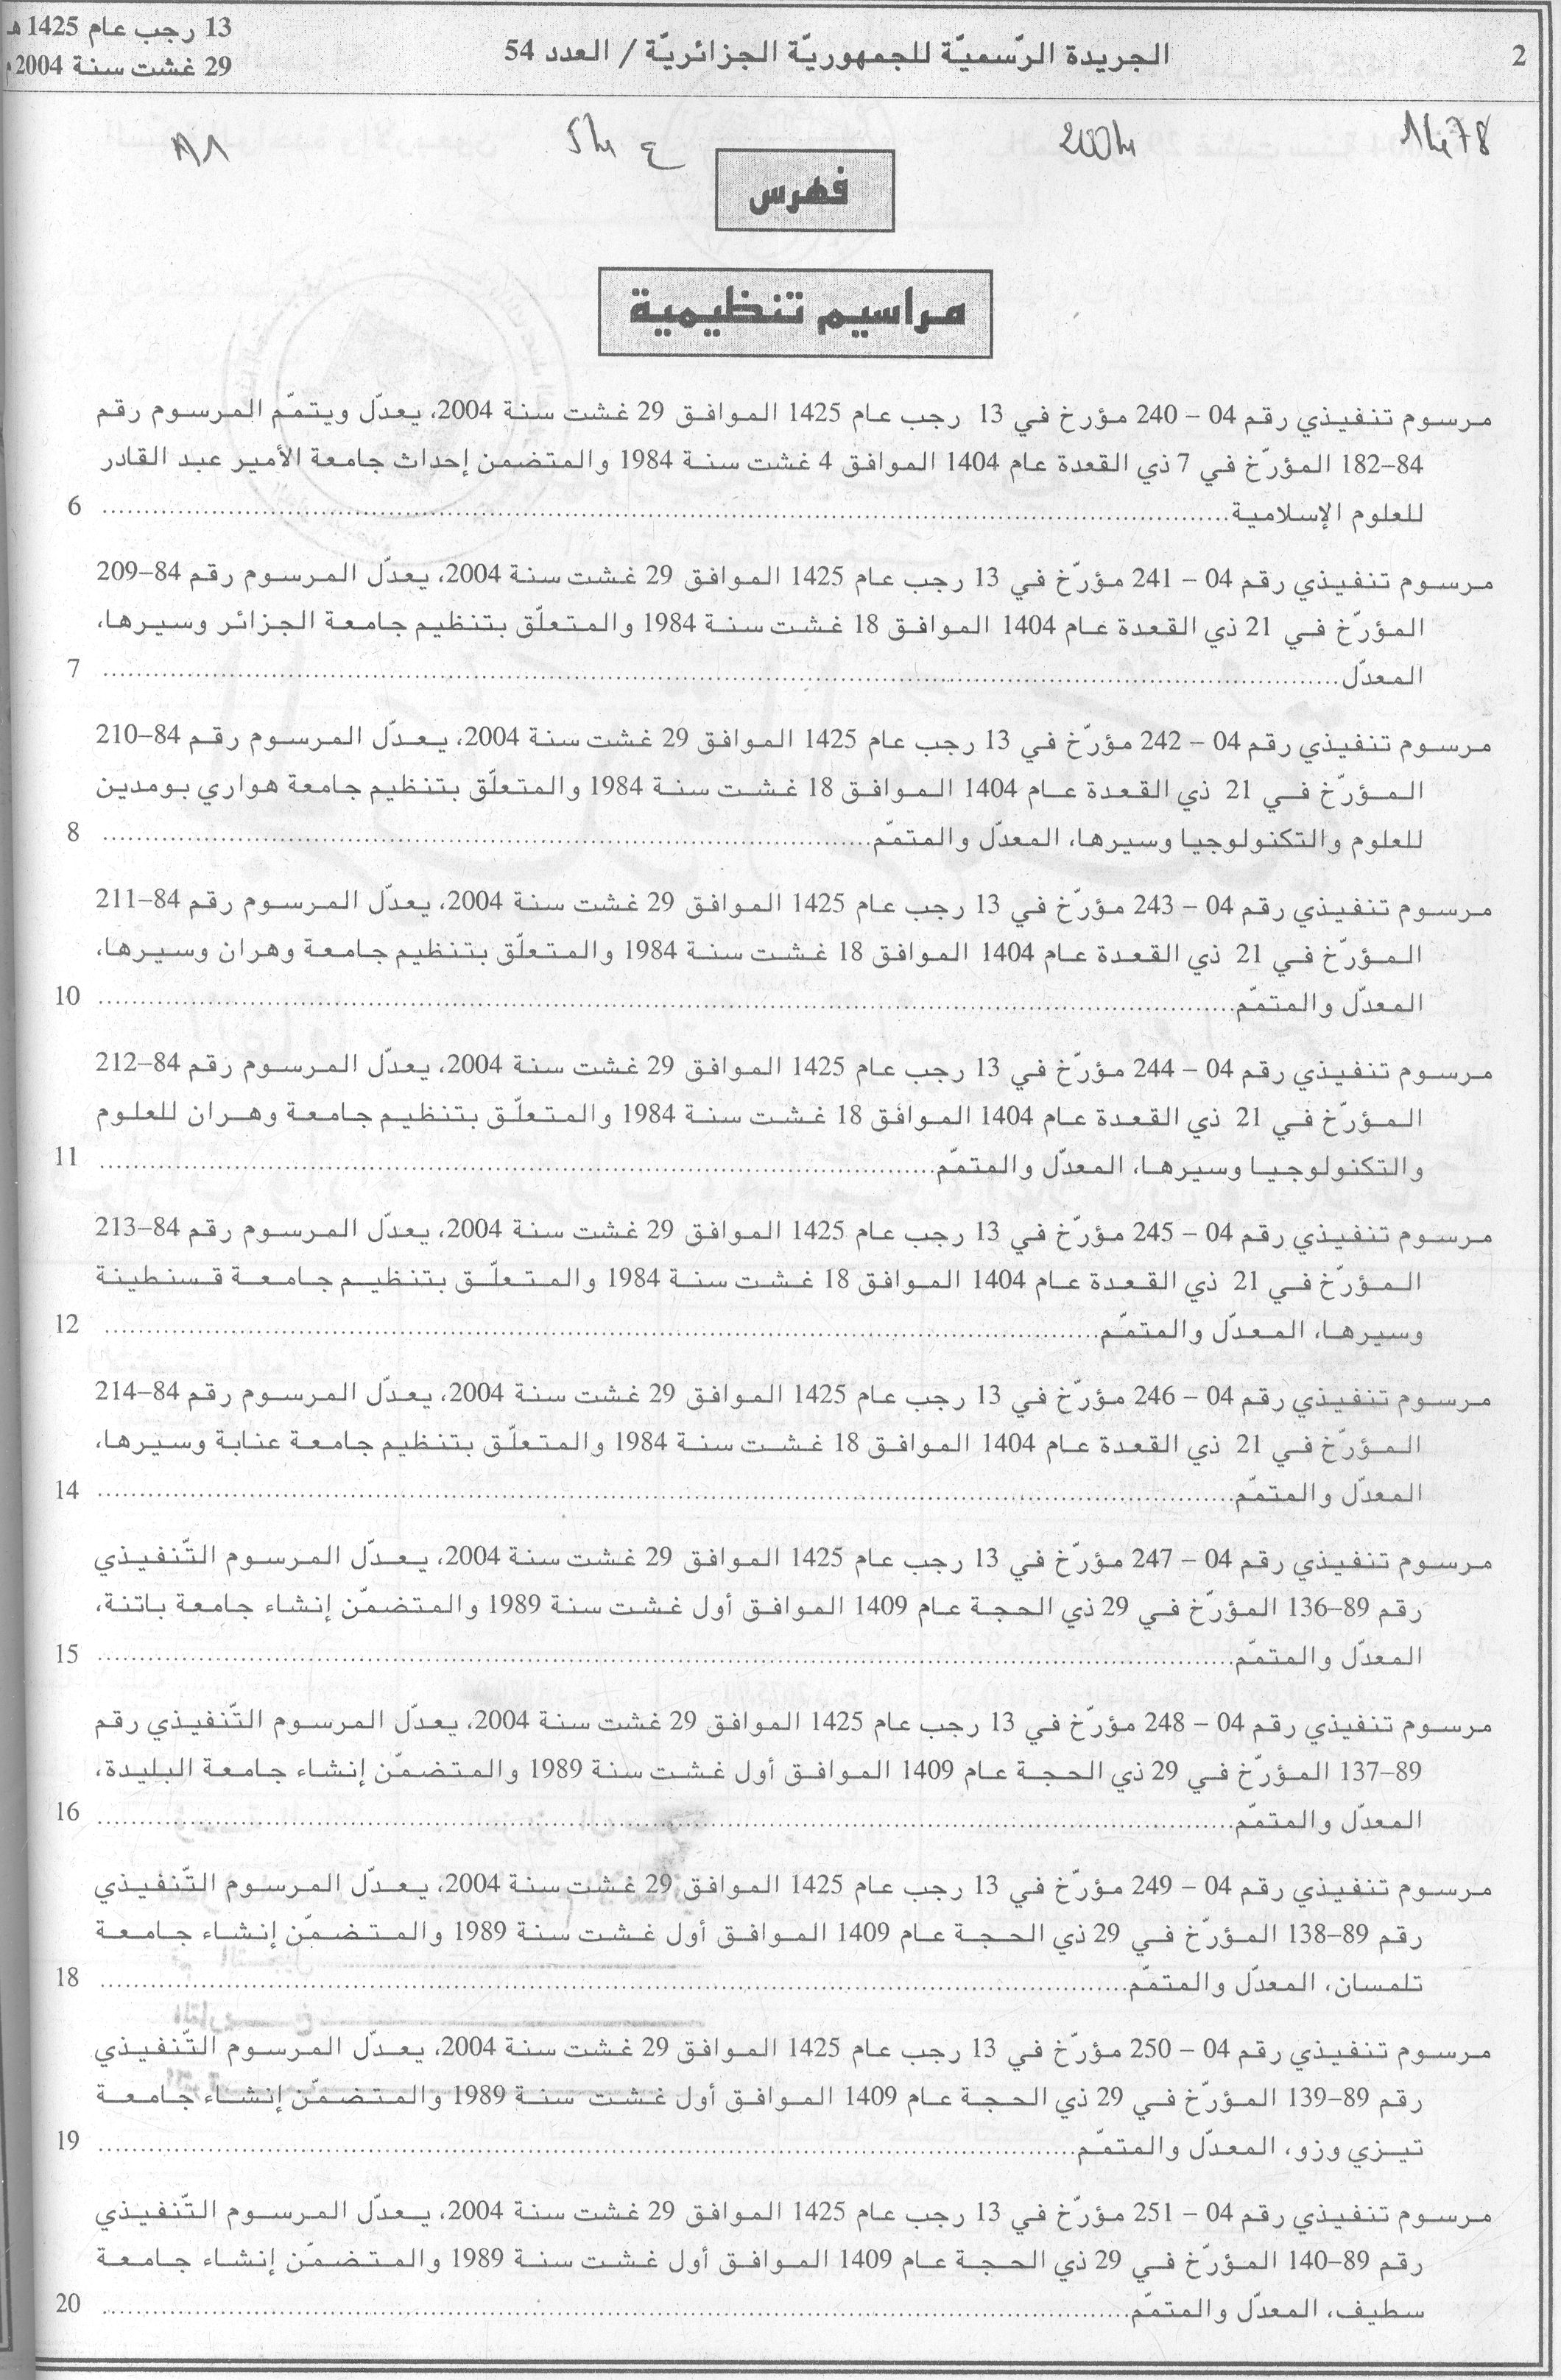 2
الجريدة الرّسميّة للجمهوريّة الجزائريّة / العدد 54
13 رجب عام 1425 هـ
29 غشت سنة 2004 م
1478
2004
ع 54
فهرس
مراسيم تنظيمية
مرسوم تنفيذي رقم 04 – 240 مؤرخ في 13 رجب عام 1425 الموافق 29 غشت سنة 2004، يعدّل ويتمّم المرسوم رقم
84–182 المؤرّخ في 7 ذي القعدة عام 1404 الموافق 4 غشت سنة 1984 والمتضمن إحداث جامعة الأمير عبد القادر
للعلوم الإسلامية........................................ 6
مرسوم تنفيذي رقم 04 – 241 مؤرّخ في 13 رجب عام 1425 الموافق 29 غشت سنة 2004، يعدّل المرسوم رقم 84–209
المؤرّخ في 21 ذي القعدة عام 1404 الموافق 18 غشت سنة 1984 والمتعلّق بتنظيم جامعة الجزائر وسيرها،
المعدّل........................................ 7
مرسوم تنفيذي رقم 04 – 242 مؤرّخ في 13 رجب عام 1425 الموافق 29 غشت سنة 2004، يعدّل المرسوم رقم 84–210
المؤرّخ في 21 ذي القعدة عام 1404 الموافق 18 غشت سنة 1984 والمتعلّق بتنظيم جامعة هواري بومدين
للعلوم والتكنولوجيا وسيرها، المعدّل والمتمّم........................................ 8
مرسوم تنفيذي رقم 04 – 243 مؤرّخ في 13 رجب عام 1425 الموافق 29 غشت سنة 2004، يعدّل المرسوم رقم 84–211
المؤرّخ في 21 ذي القعدة عام 1404 الموافق 18 غشت سنة 1984 والمتعلّق بتنظيم جامعة وهران وسيرها،
المعدّل والمتمّم........................................ 10
مرسوم تنفيذي رقم 04 – 244 مؤرّخ في 13 رجب عام 1425 الموافق 29 غشت سنة 2004، يعدّل المرسوم رقم 84–212
المؤرّخ في 21 ذي القعدة عام 1404 الموافق 18 غشت سنة 1984 والمتعلّق بتنظيم جامعة وهران للعلوم
والتكنولوجيا وسيرها، المعدّل والمتمّم........................................ 11
مرسوم تنفيذي رقم 04 – 245 مؤرّخ في 13 رجب عام 1425 الموافق 29 غشت سنة 2004، يعدّل المرسوم رقم 84–213
المؤرّخ في 21 ذي القعدة عام 1404 الموافق 18 غشت سنة 1984 والمتعلّق بتنظيم جامعة قسنطينة
وسيرها، المعدّل والمتمّم........................................ 12
مرسوم تنفيذي رقم 04 – 246 مؤرّخ في 13 رجب عام 1425 الموافق 29 غشت سنة 2004، يعدّل المرسوم رقم 84–214
المؤرّخ في 21 ذي القعدة عام 1404 الموافق 18 غشت سنة 1984 والمتعلّق بتنظيم جامعة عنابة وسيرها،
المعدّل والمتمّم........................................ 14
مرسوم تنفيذي رقم 04 – 247 مؤرّخ في 13 رجب عام 1425 الموافق 29 غشت سنة 2004، يعدّل المرسوم التّنفيذي
رقم 89–136 المؤرّخ في 29 ذي الحجة عام 1409 الموافق أول غشت سنة 1989 والمتضمّن إنشاء جامعة باتنة،
المعدّل والمتمّم........................................ 15
مرسوم تنفيذي رقم 04 – 248 مؤرّخ في 13 رجب عام 1425 الموافق 29 غشت سنة 2004، يعدّل المرسوم التّنفيذي رقم
89–137 المؤرّخ في 29 ذي الحجة عام 1409 الموافق أول غشت سنة 1989 والمتضمّن إنشاء جامعة البليدة،
المعدّل والمتمّم........................................ 16
مرسوم تنفيذي رقم 04 – 249 مؤرّخ في 13 رجب عام 1425 الموافق 29 غشت سنة 2004، يعدّل المرسوم التّنفيذي
رقم 89–138 المؤرّخ في 29 ذي الحجة عام 1409 الموافق أول غشت سنة 1989 والمتضمّن إنشاء جامعة
تلمسان، المعدّل والمتمّم........................................ 18
مرسوم تنفيذي رقم 04 – 250 مؤرّخ في 13 رجب عام 1425 الموافق 29 غشت سنة 2004، يعدّل المرسوم التّنفيذي
رقم 89–139 المؤرّخ في 29 ذي الحجة عام 1409 الموافق أول غشت سنة 1989 والمتضمّن إنشاء جامعة
تيزي وزو، المعدّل والمتمّم........................................ 19
مرسوم تنفيذي رقم 04 – 251 مؤرّخ في 13 رجب عام 1425 الموافق 29 غشت سنة 2004، يعدّل المرسوم التّنفيذي
رقم 89–140 المؤرّخ في 29 ذي الحجة عام 1409 الموافق أول غشت سنة 1989 والمتضمّن إنشاء جامعة
سطيف، المعدّل والمتمّم........................................ 20